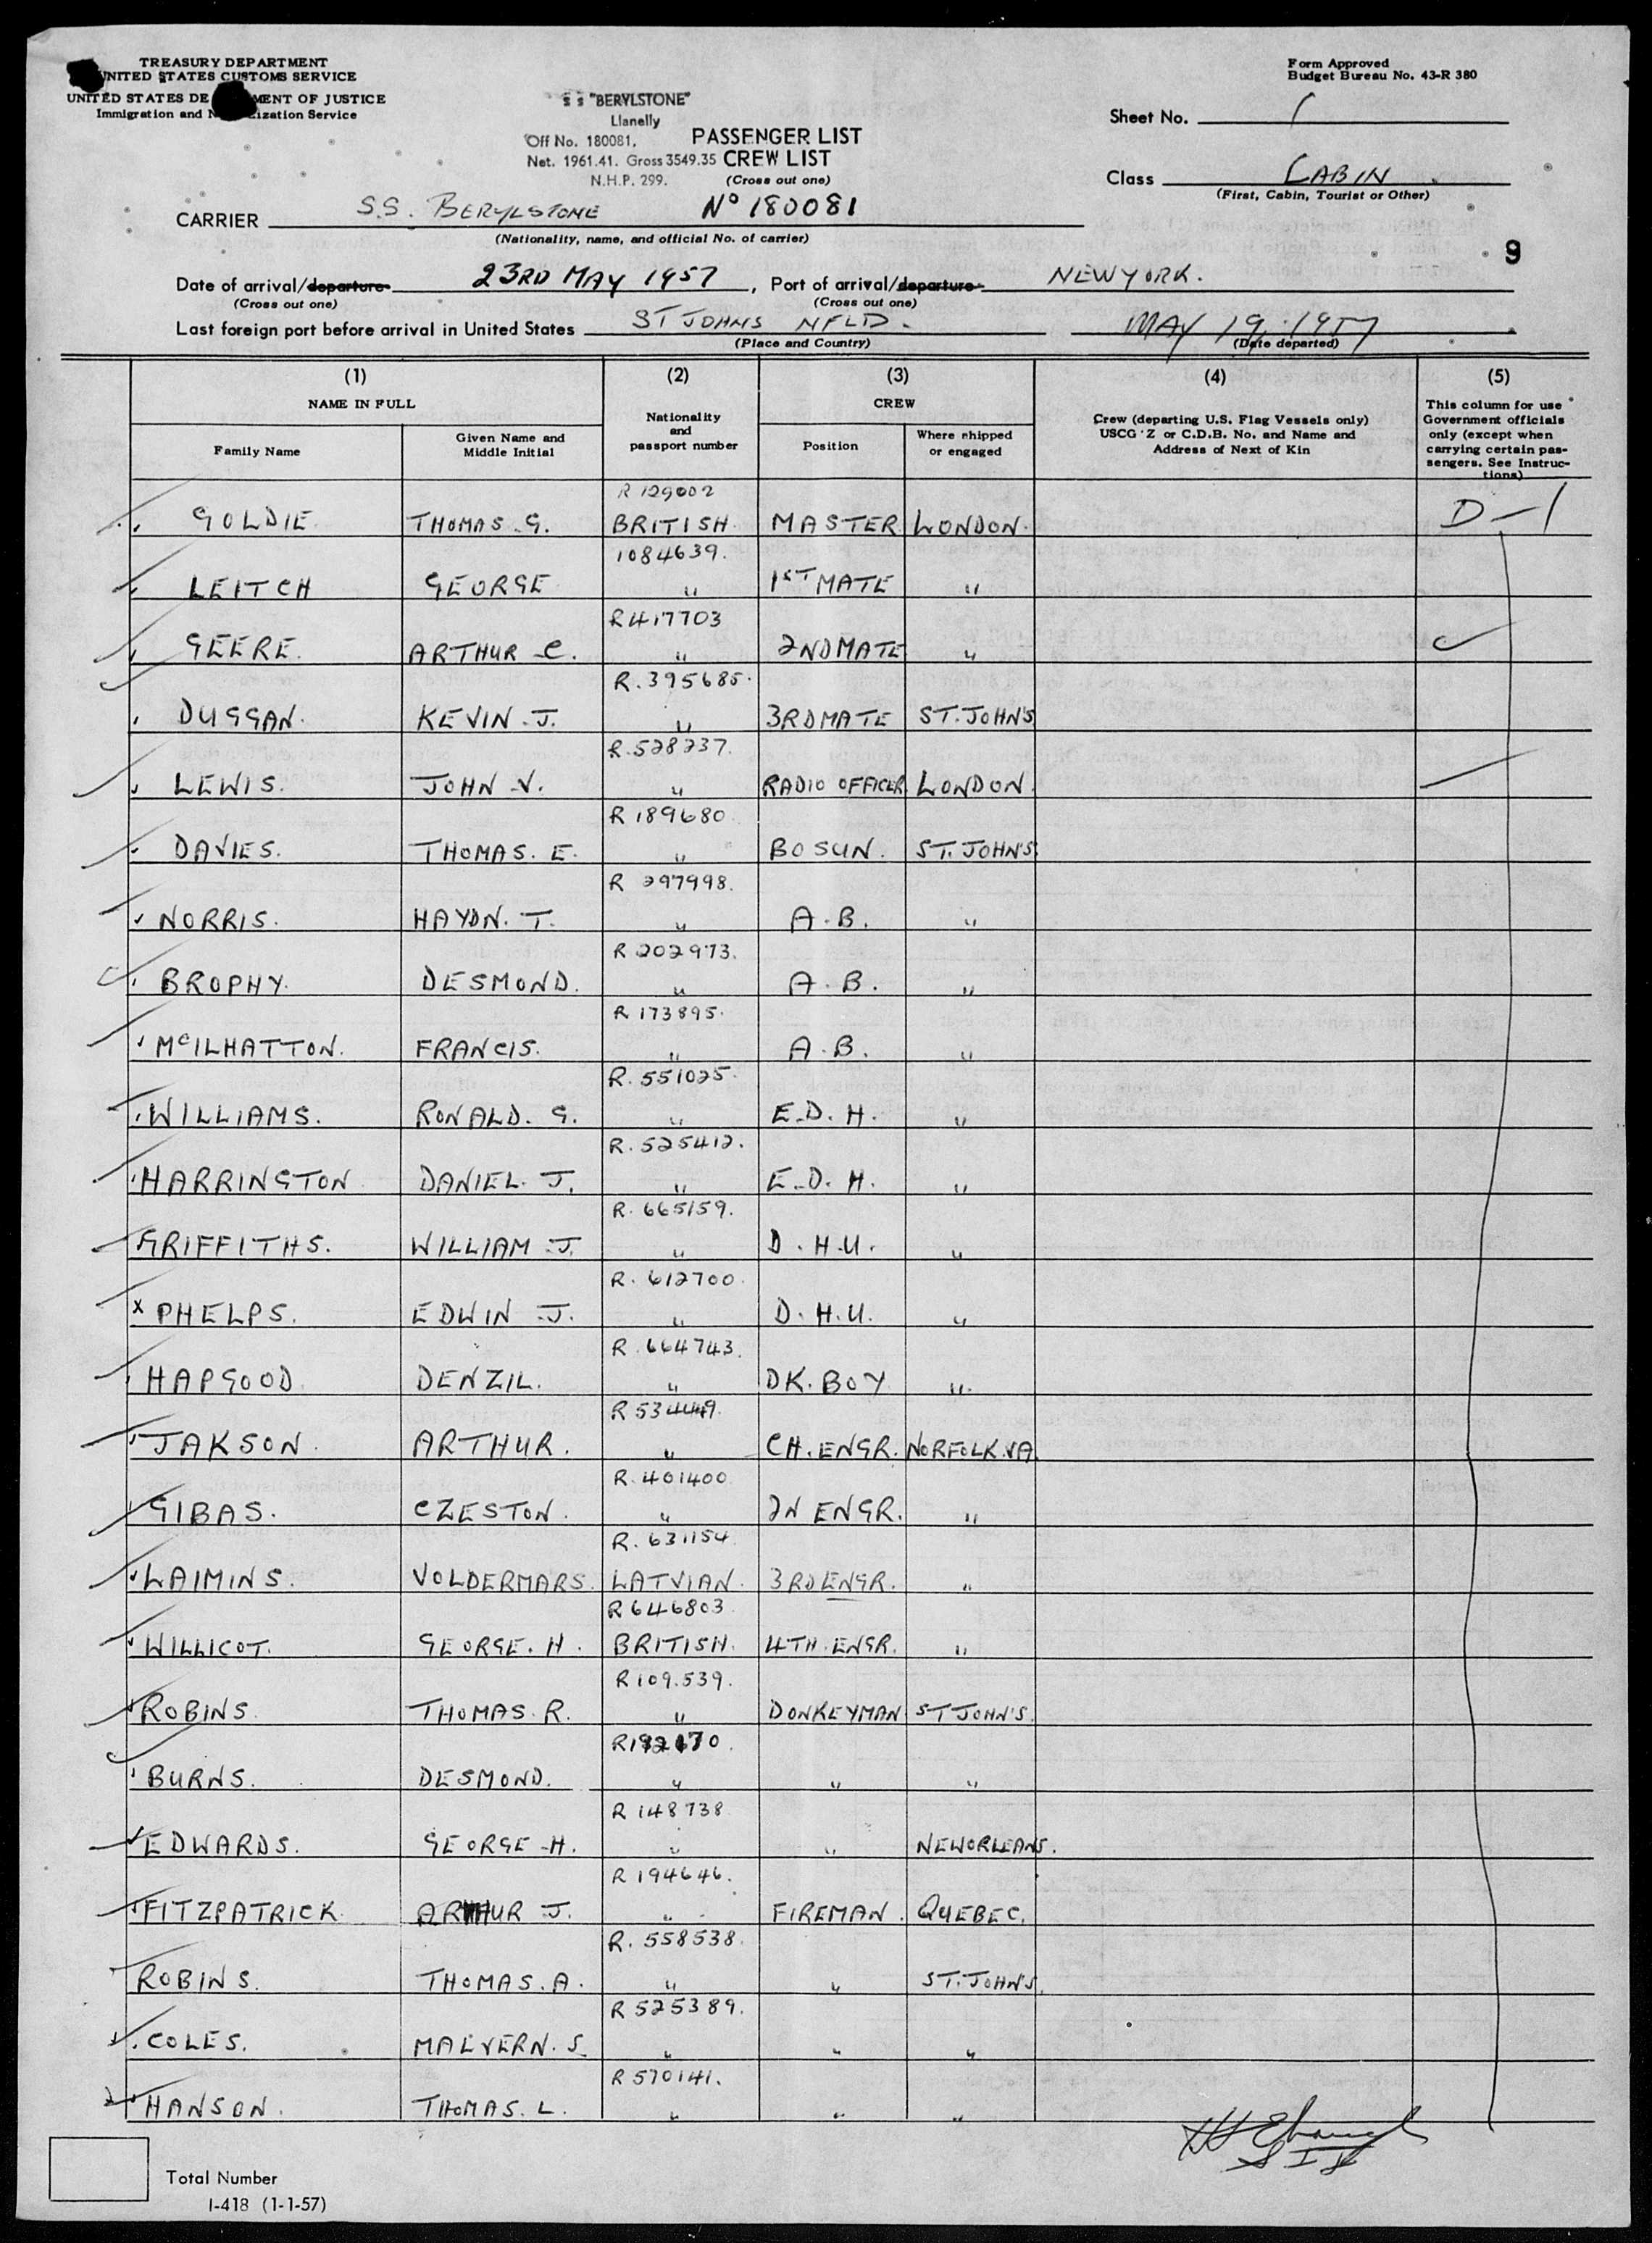 TREASURY DEPARTMENT
UNITED STATES CUSTOMS SERVICE
UNITED STATES DE MENT OF JUSTICE
Immigration and N ization Service
Form Approved
Budget Bureau No. 43-R 380
S S "BERYLSTONE"
Llanelly
Off No. 180081.
Net. 1961.41. Gross 3549.35
N.H.P. 299.
PASSENGER LIST
CREW LIST
(Cross out one)
Sheet No. 1
Class CABIN
(First, Cabin, Tourist or Other)
CARRIER S.S. BERYLSTONE No 180081
(Nationality, name, and official No. of carrier)
9
Date of arrival/departure 23RD MAY 1957, Port of arrival/departure NEW YORK.
(Cross out one) (Cross out one)
Last foreign port before arrival in United States ST JOHNS NFLD. MAY 19, 1957
(Place and Country) (Date departed)
(1) (2) (3) (4) (5)
NAME IN FULL
Family Name
Given Name and Middle Initial
Nationality and passport number
CREW
Position
Where shipped or engaged
Crew (departing U.S. Flag Vessels only)
USCG Z or C.D.B. No. and Name and
Address of Next of Kin
This column for use
Government officials
only (except when
carrying certain pas-
sengers. See Instruc-
tions)
R 129002
GOLDIE THOMAS G. BRITISH MASTER LONDON. D-1
1084639.
LEITCH GEORGE " 1ST MATE "
R417703
GEERE. ARTHUR C. " 2ND MATE "
R.395685.
DUGGAN. KEVIN J. " 3RD MATE ST. JOHN'S
R.528237.
LEWIS. JOHN V. " RADIO OFFICER LONDON.
R 189680
DAVIES. THOMAS. E. " BOSUN. ST. JOHN'S
R 297998.
NORRIS. HAYDN. T. " A.B. "
R 202973.
BROPHY. DESMOND. " A.B. "
R 173895.
McILHATTON. FRANCIS. " A.B. "
R. 551025.
WILLIAMS. RONALD. G. " E.D.H. "
R. 525412.
HARRINGTON DANIEL. J. " E.D.H. "
R. 665159.
GRIFFITHS. WILLIAM J. " D.H.U. "
R. 612700.
x PHELPS. EDWIN J. " D.H.U. "
R. 664743.
HAPGOOD DENZIL. " DK. BOY "
R 534449.
JAKSON. ARTHUR. " CH. ENGR. NORFOLK. VA.
R. 401400
GIBAS. CZESTON. " 2N ENGR. "
R. 631154
LAIMINS. VOLDERMARS. LATVIAN. 3RD ENGR. "
R 646803
WILLICOT. GEORGE. H. BRITISH. 4TH. ENGR. "
R 109.539.
ROBINS. THOMAS. R. " DONKEYMAN ST JOHN'S.
BURNS. DESMOND. " " "
R 148738
EDWARDS. GEORGE H. " " NEW ORLEANS.
R 194646.
FITZPATRICK ARTHUR J. " FIREMAN. QUEBEC.
R. 558538.
ROBINS. THOMAS. A. " " ST. JOHN'S.
R 525389.
COLES. MALVERN. S. " " "
R 570141.
HANSON. THOMAS. L. " " "
Total Number
I-418 (1-1-57)